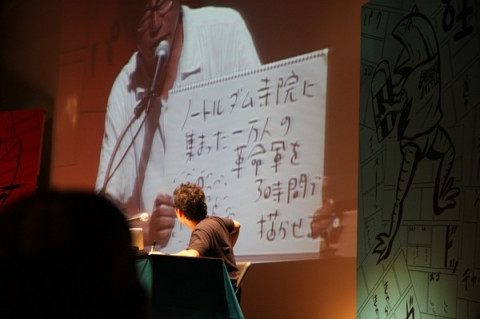 ノートルダム寺院に
集まった一万人の
革命軍を
30時間で
描かせ